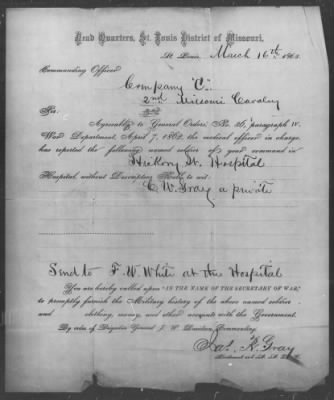 Head Quarters, St. Louis District of Missouri,
St. Louis, March 16th 1863.
Commanding Officer
Company "C"
2nd Missouri Cavalry
Sir:
Agreeably to General Orders, No. 36, paragraph IV.
War Department, April 7, 1862, the medical officer in charge
has reported the following named soldier of your command in
Hickory St. Hospital
Hospital, without Descriptive Roll, to wit:
C. W. Gray a private
Send to F. W. White at the Hospital
You are hereby called upon "IN THE NAME OF THE SECRETARY OF WAR,"
to promptly furnish the Military history of the above named soldier
and clothing, money, and other accounts with the Government.
By order of Brigadier General J. W. Davidson, Commanding.
Jas. K. Gray